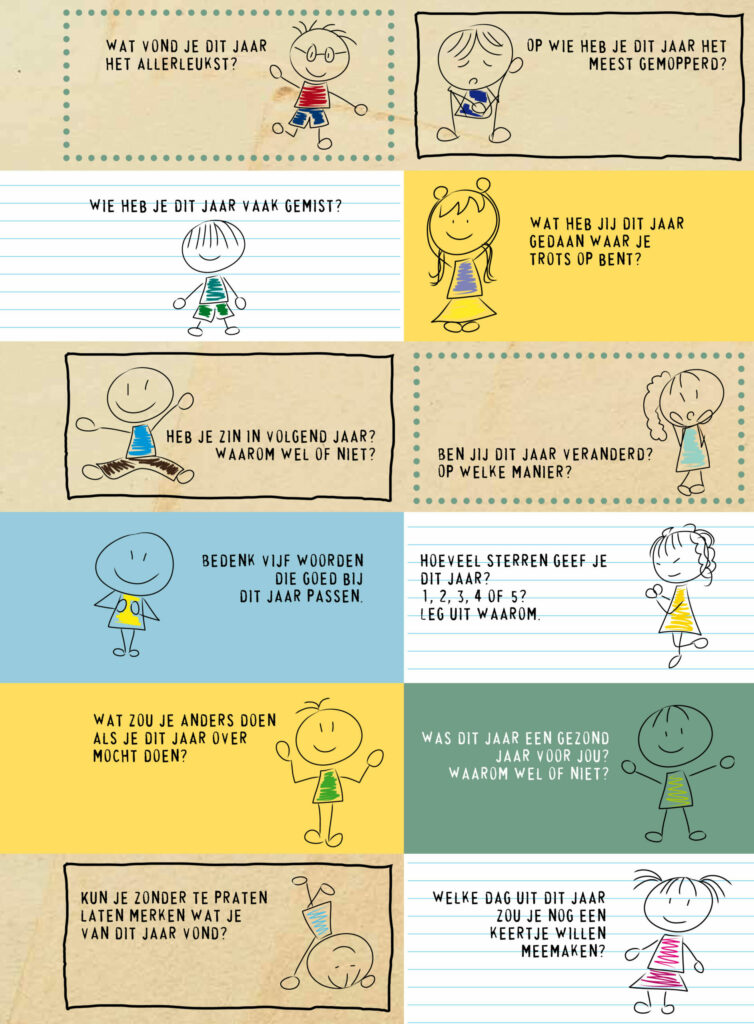 WAT VOND JE DIT JAAR
HET ALLERLEUKST?
OP WIE HEB JE DIT JAAR HET
MEEST GEMOPPERD?
WIE HEB JE DIT JAAR VAAK GEMIST?
WAT HEB JIJ DIT JAAR
GEDAAN WAAR JE
TROTS OP BENT?
HEB JE ZIN IN VOLGEND JAAR?
WAAROM WEL OF NIET?
BEN JIJ DIT JAAR VERANDERD?
OP WELKE MANIER?
BEDENK VIJF WOORDEN
DIE GOED BIJ
DIT JAAR PASSEN.
HOEVEEL STERREN GEEF JE
DIT JAAR?
1, 2, 3, 4 OF 5?
LEG UIT WAAROM.
WAT ZOU JE ANDERS DOEN
ALS JE DIT JAAR OVER
MOCHT DOEN?
WAS DIT JAAR EEN GEZOND
JAAR VOOR JOU?
WAAROM WEL OF NIET?
KUN JE ZONDER TE PRATEN
LATEN MERKEN WAT JE
VAN DIT JAAR VOND?
WELKE DAG UIT DIT JAAR
ZOU JE NOG EEN
KEERTJE WILLEN
MEEMAKEN?